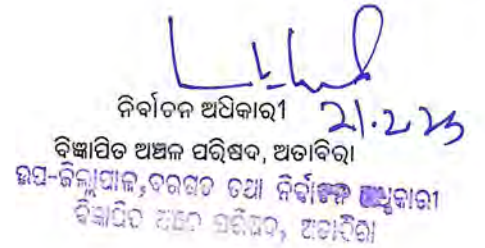 21.2.23
ନିର୍ବାଚନ ଅଧିକାରୀ
ବିଜ୍ଞାପିତ ଅଞ୍ଚଳ ପରିଷଦ, ଅତାବିରା
ଉପ-ଜିଲ୍ଲାପାଳ, ବରଗଡ ତଥା ନିର୍ବାଚନ ଅଧିକାରୀ
ବିଜ୍ଞାପିତ ଅଞ୍ଚଳ ପରିଷଦ, ଅତାବିରା